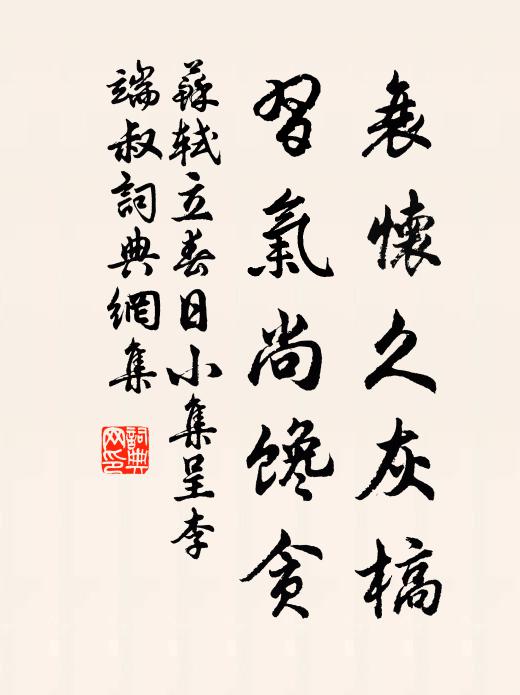 衰懷久灰槁
習氣尚馋貪
蘇軾立春日小集呈李
端叔詞典網集
詞典網印